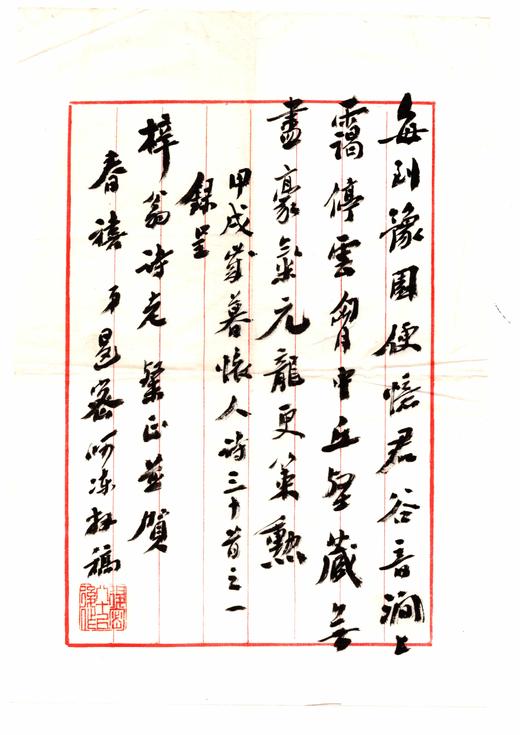 每到豫園便憶君谷音澗上
靄停雲胸中丘壑藏無
盡豪氣元龍更策勳
甲戌歲暮懷人詩三十首之一
錄呈
梓翁詩老粲正並賀
春禧弟退密呵凍拜稿